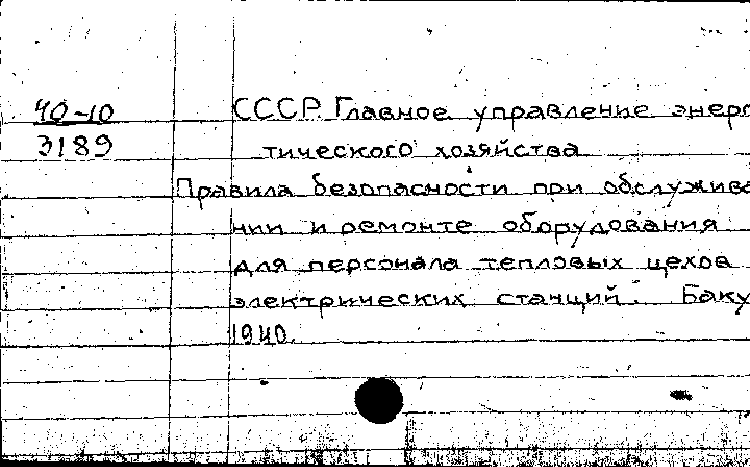 40-10 СССР. Главное управление энерг
3189 тического хозяйства
Правила безопасности при обслужива
нии и ремонте оборудования
для персонала тепловых цехов
электрических станций. Баку
1940.